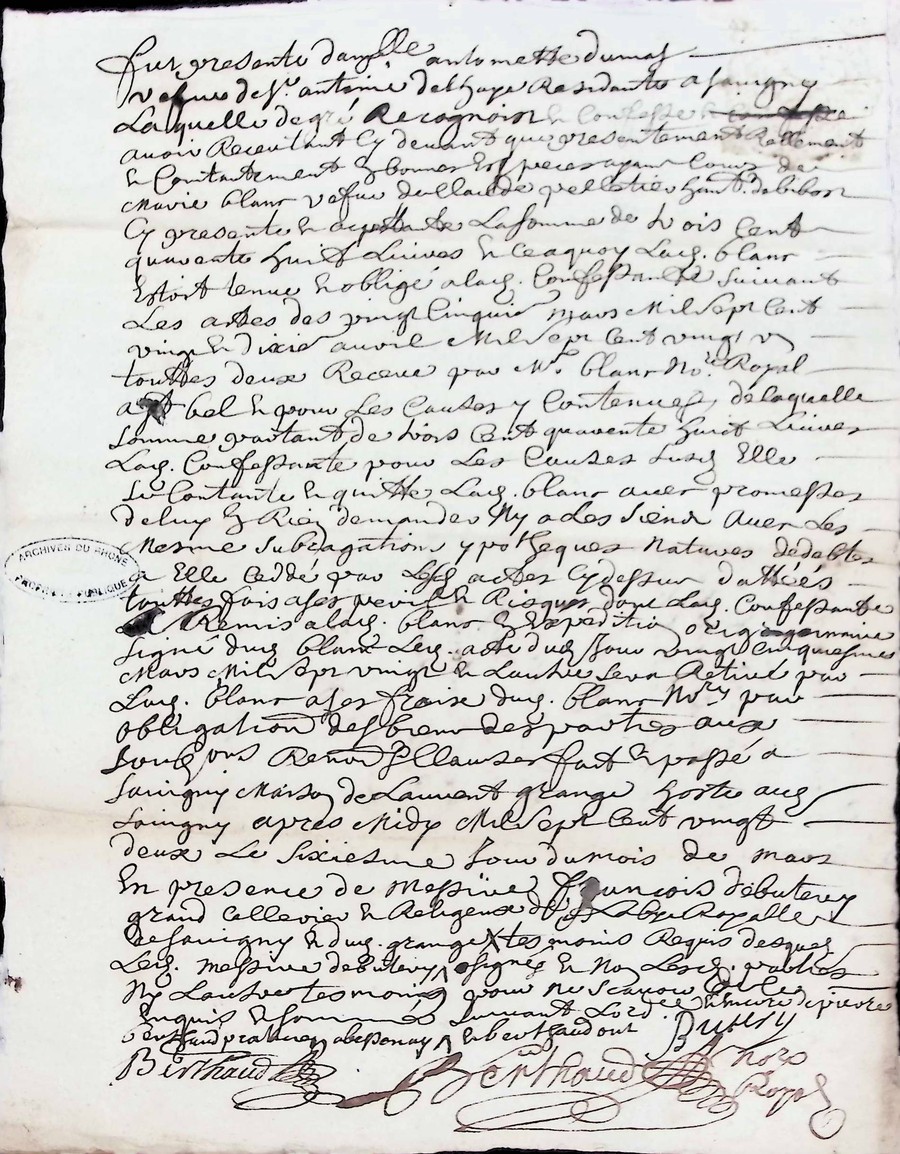 Fut presente dam.lle antoinette dumas
vefve de Sr. antoine delhaye Residante a Savigny
Laquelle de gré Recognoist et Confesse
avoir Receu tant Cy devant que presentement Reellement
et Contantement En bonnes Especes ayant Cours de
Marie blanc vefve de Claude pelletier habit. de bibost
Cy presente et aceptante La somme de trois Cent
quarente huit Livres En Ce a quoy Lad. blanc
Estoit tenue et obligé a lad. Confessante Suivant
Les actes des vingt Cinquie mars Mil Sept Cent
vingt et dixie avril Mil Sept Cent vingt un
touttes deux Receus par Me. blanc No.re Royal
a bel et pour Les Causes y Contenues de laquelle
Somme partant de trois Cent quarente huit Livres
Lad. Confessante pour Les Causes Susd Elle
Se Contante et quitte Lad. blanc avec promesses
de luy En Rien demander Ny a Les Siens avec Les
Mesme Subrogations ypotheques Natures de debtes
a Elle Ceddé par Lesd actes Cy dessus dattées
touttes fois a ses perils et Risques dont Lad. Confessante
a Remis a lad. blanc Expedition originaire
Signé dud blanc Led. acte dud Jour vingt Cinquiesme
Mars Mil Sept vingt et L'autre Sera Retiré par
Lad. blanc a ses fraix dud. blanc No.re par
obligation des biens des parties aux
Soub ons Renon Clauses fait et passé a
Savigny Maison de Laurent grange hoste aud
Savigny apres Midy Mil Sept Cent vingt
deux Le Sixiesme Jour du mois de mars
En presence de Messire François debutery
grand Cellerier et Religieux de Labye Royalle
de Savigny et dud. grange tesmoins Requis desquels
Led. Messire debutery a signé et Non Lesd. parties
Ny L'autre tesmoing pour ne Scavoir de Ce
Enquis et Sommes Suivant Lord.ce Encore de pierre
berthaud praticien a bessenay et berthaud ont
Berthaud Berthaud Nore
Royal
ARCHIVES DU RHONE
PROPRIÉTÉ PUBLIQUE